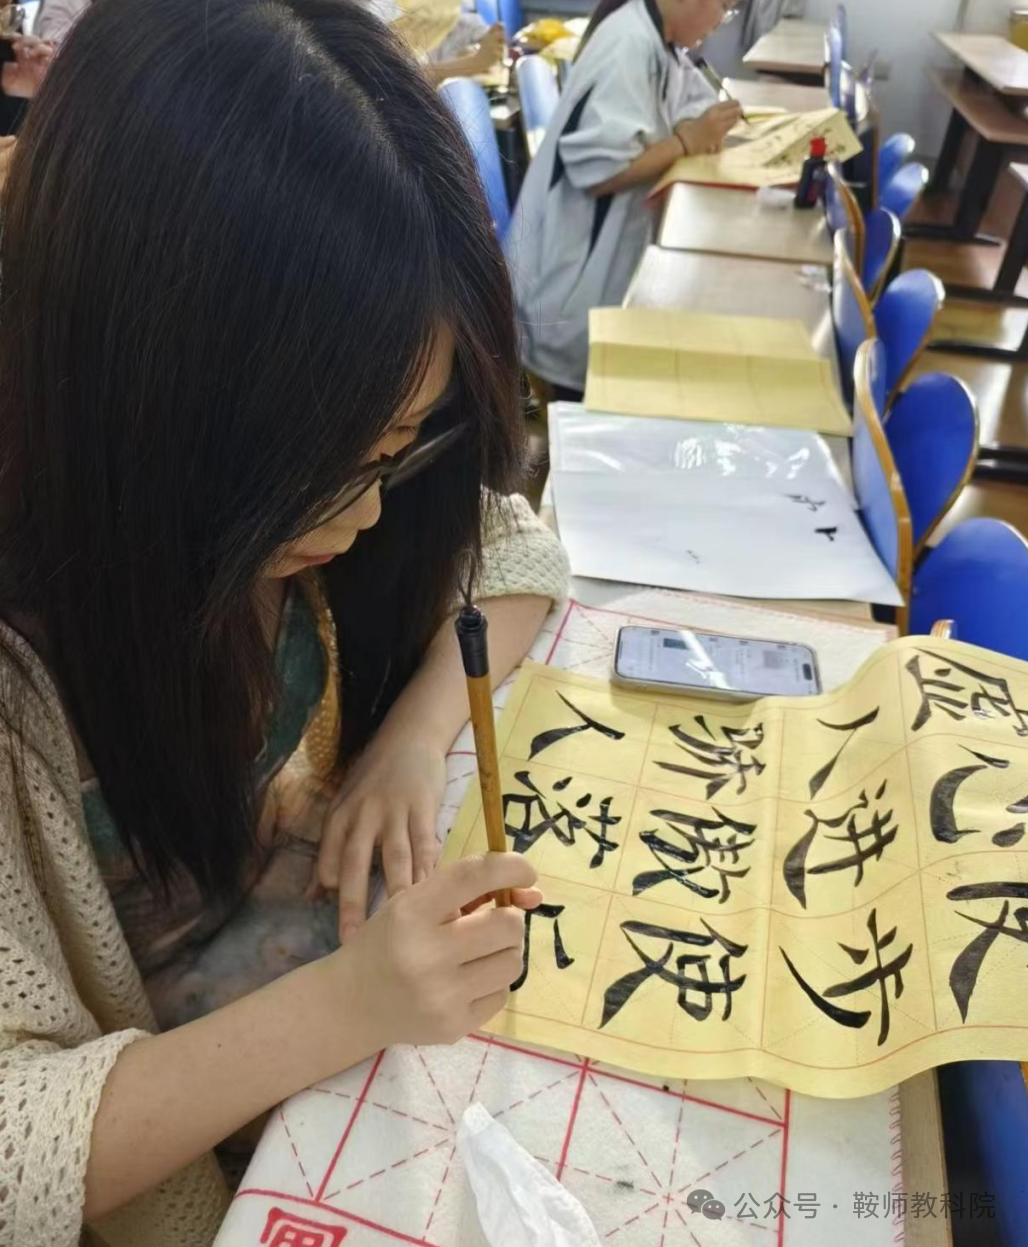 虚心使
人进步
骄傲使
人落后
公众号 · 鞍师教科院